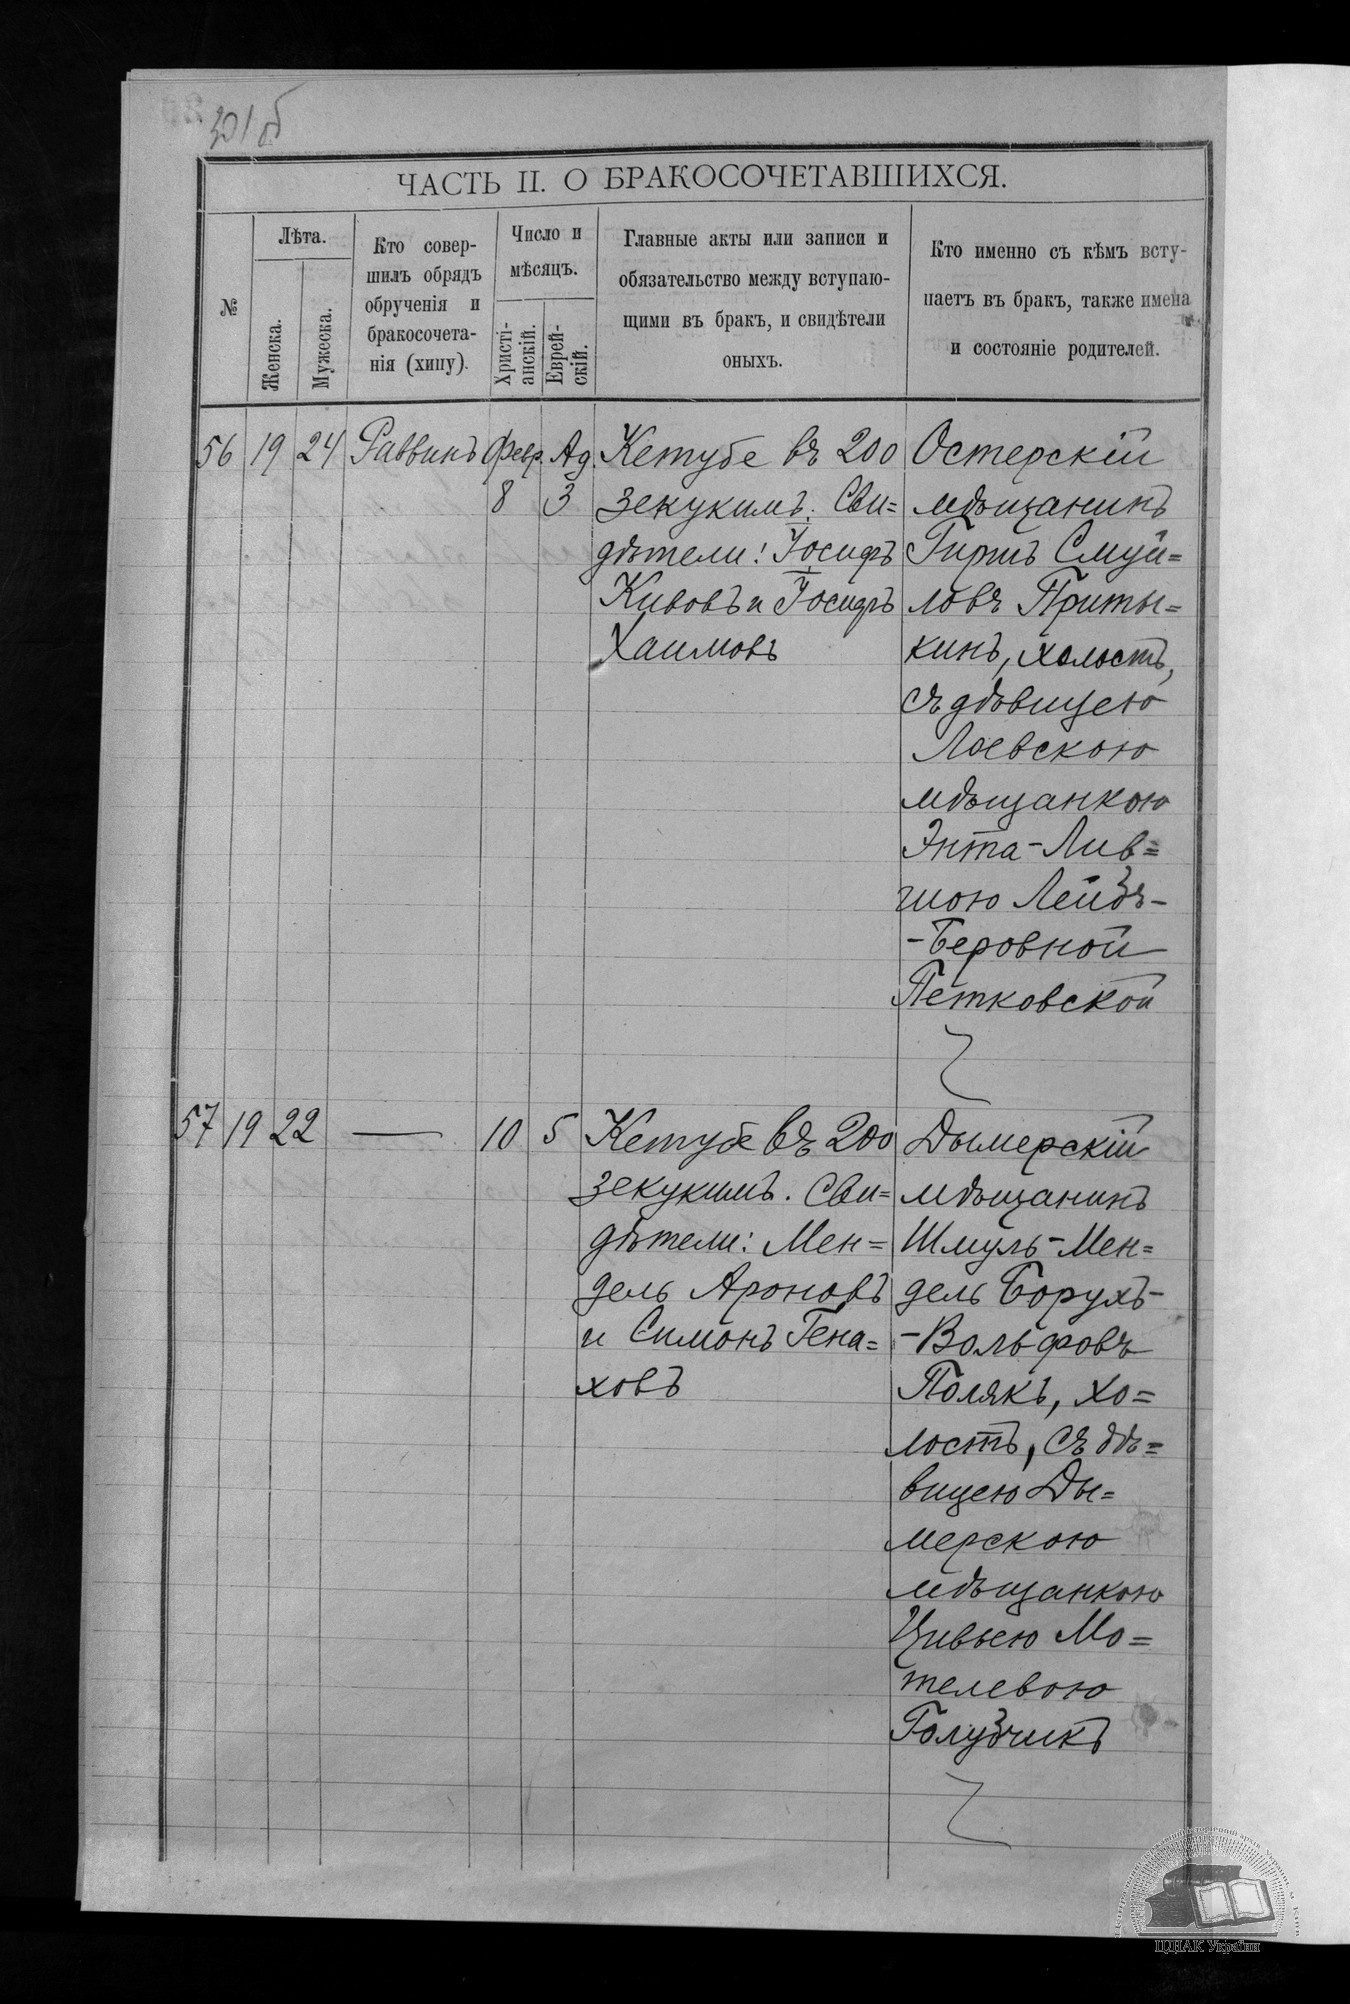 301 б
ЧАСТЬ II. О БРАКОСОЧЕТАВШИХСЯ.
№
Лѣта.
Женска.
Мужеска.
Кто совер-
шилъ обрядъ
обрученія и
бракосочета-
нія (хипу).
Число и
мѣсяцъ.
Христі-
анскій.
Еврей-
скій.
Главные акты или записи и
обязательство между вступаю-
щими въ бракъ, и свидѣтели
оныхъ.
Кто именно съ кѣмъ всту-
паетъ въ бракъ, также имена
и состояніе родителей.
56 19 24 Раввинъ Февр. 8 Ад. 3
Кетубе въ 200
зекукимъ. Сви=
дѣтели: Іосифъ
Кивовъ и Іосифъ
Хаимовъ
Остерскій
мѣщанинъ
Гиршъ Смуй=
ловъ Приты=
кинъ, холостъ,
съ дѣвицею
Лоевскою
мѣщанкою
Энта-Лив=
шою Лейзъ-
-Беровной
Петковской
57 19 22 — 10 5
Кетубе въ 200
зекукимъ. Сви=
дѣтели: Мен=
дель Ароновъ
и Симонъ Гена=
ховъ
Дымерскій
мѣщанинъ
Шмуль-Мен=
дель Борухъ-
-Вольфовъ
Полякъ, хо=
лостъ, съ дѣ=
вицею Ды=
мерскою
мѣщанкою
Цивьею Мо=
телевою
Голубчикъ
ЦДІАК України